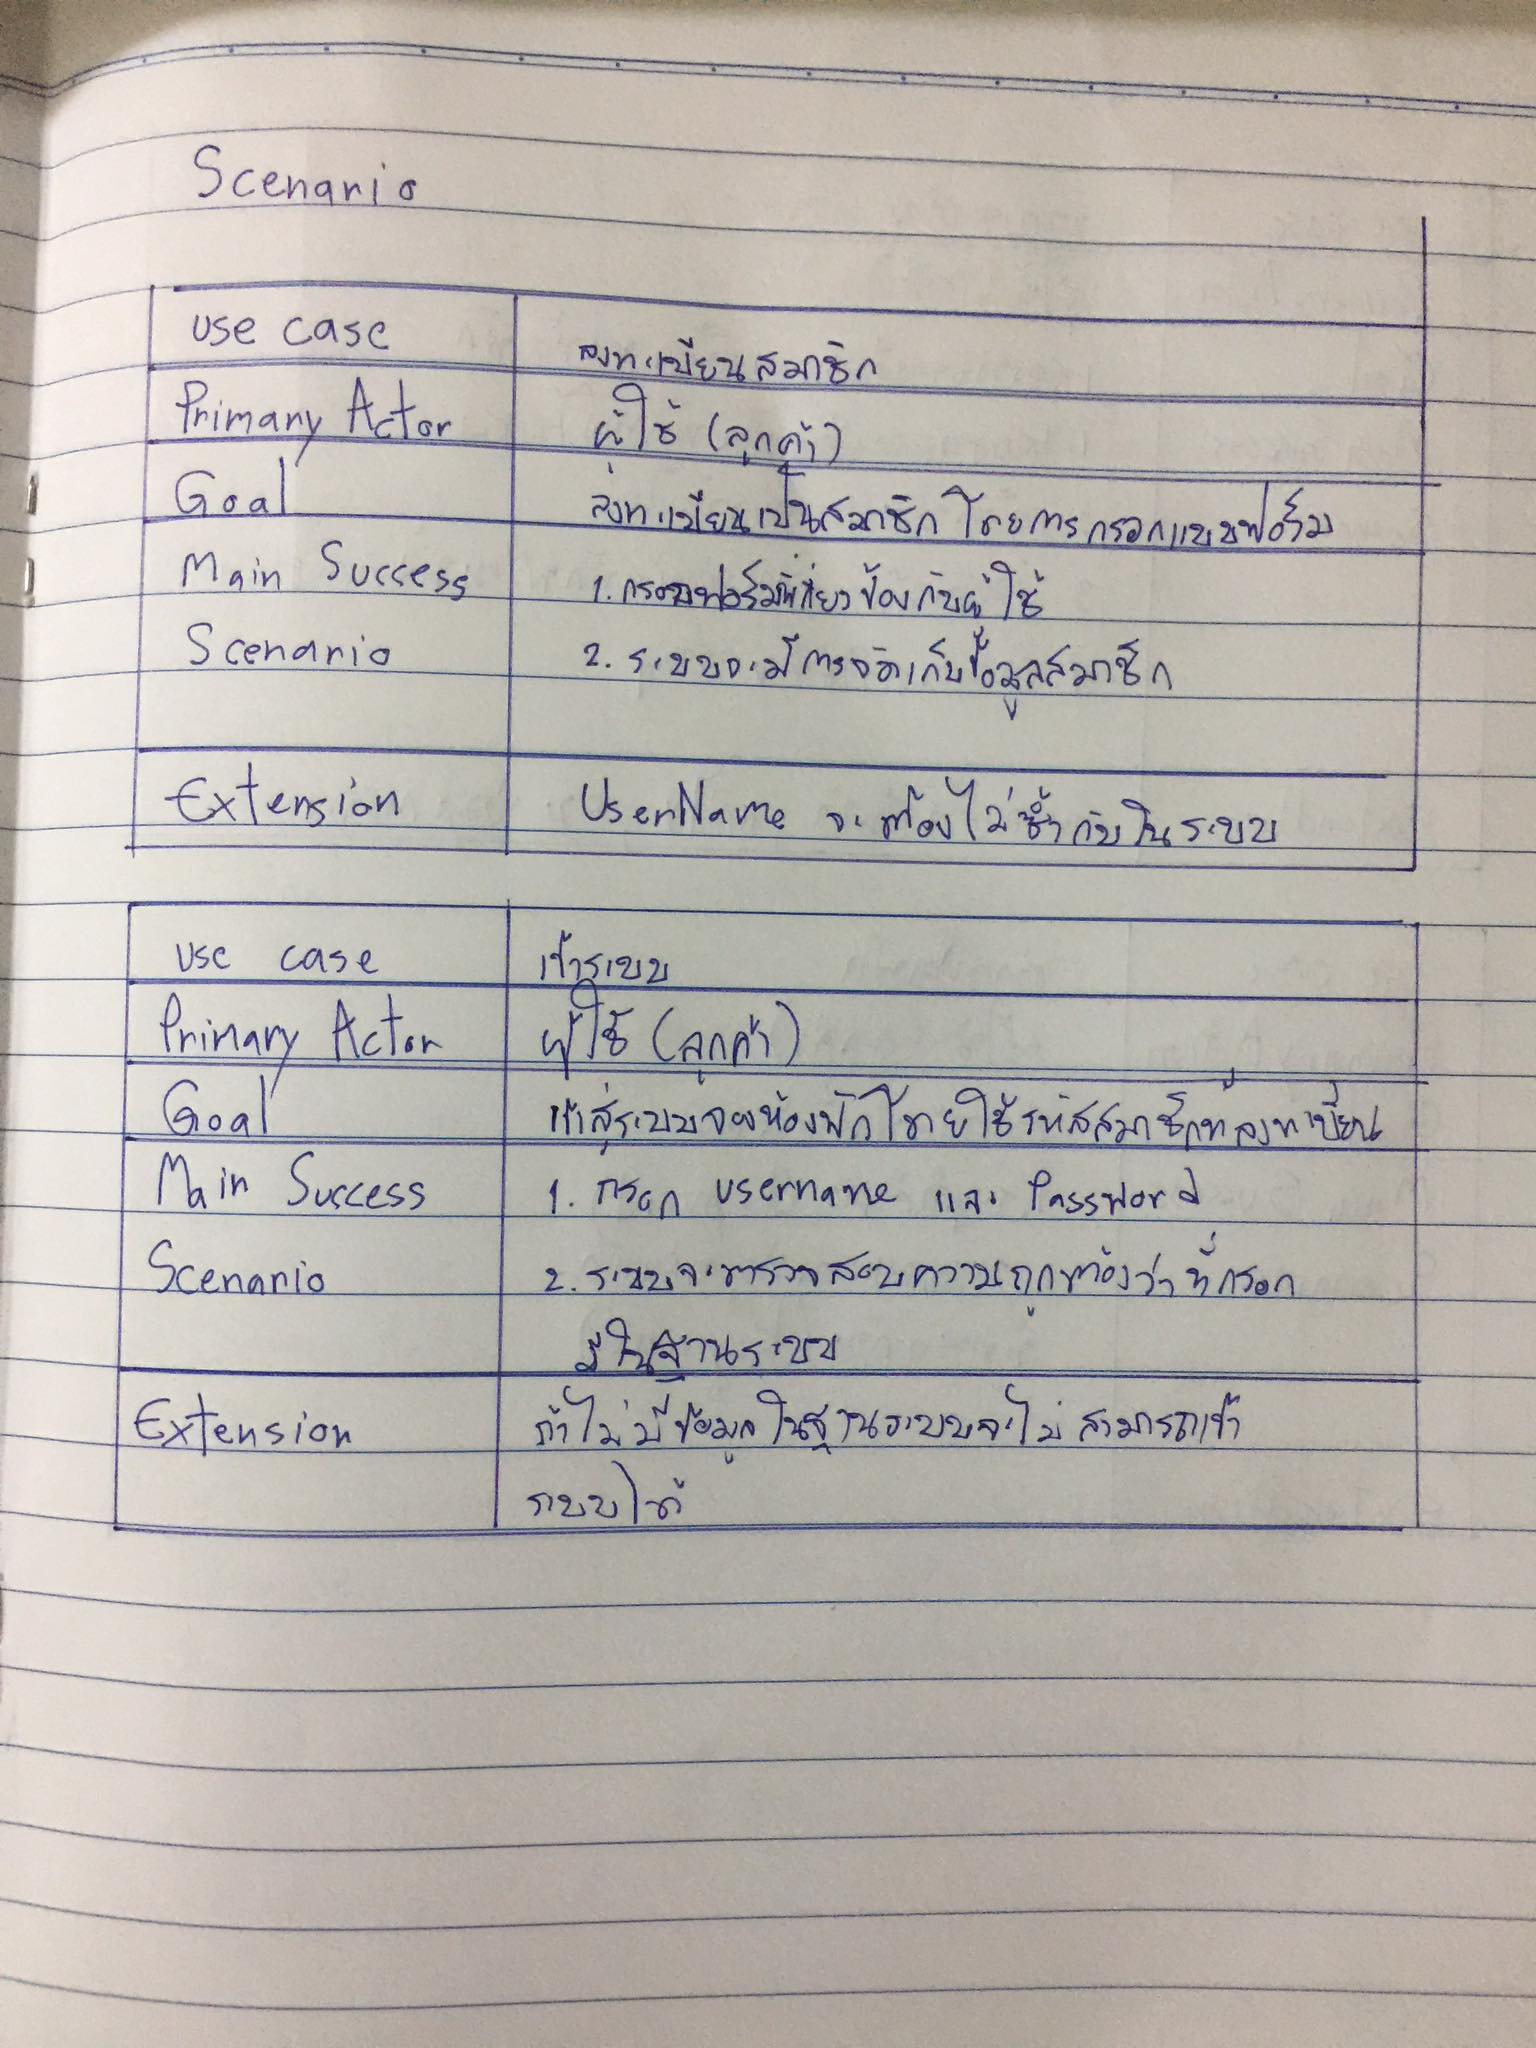 Scenario
use case ลงทะเบียนสมาชิก
Primary Actor ผู้ใช้ (ลูกค้า)
Goal ลงทะเบียนเป็นสมาชิกโดยการกรอกแบบฟอร์ม
Main Success 1. กรอกฟอร์มที่เกี่ยวข้องกับผู้ใช้
Scenario 2. ระบบจะมีการจัดเก็บข้อมูลสมาชิก
Extension UserName จะต้องไม่ซ้ำกับในระบบ
use case เข้าระบบ
Primary Actor ผู้ใช้ (ลูกค้า)
Goal เข้าสู่ระบบจองห้องพักโดยใช้รหัสสมาชิกที่ลงทะเบียน
Main Success 1. กรอก username และ Password
Scenario 2. ระบบจะตรวจสอบความถูกต้องว่าที่กรอก
มีในฐานระบบ
Extension ถ้าไม่มีข้อมูลในฐานระบบจะไม่สามารถเข้า
ระบบได้